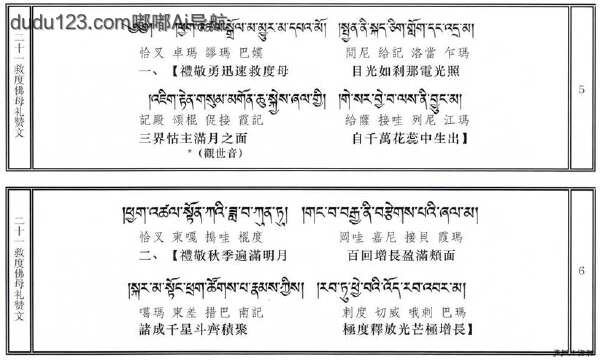 dudu123.com嘟嘟Ai导航
二十一救度佛母礼赞文
།ཕྱག་འཚལ་སྒྲོལ་མ་མྱུར་མ་དཔའ་མོ། །སྤྱན་ནི་སྐད་ཅིག་གློག་དང་འདྲ་མ།
恰叉 卓瑪 謬瑪 巴嫫 間尼 給記 洛當 乍瑪
一、【禮敬勇迅速救度母 目光如剎那電光照
།འཇིག་རྟེན་གསུམ་མགོན་ཆུ་སྐྱེས་ཞལ་གྱི། །གེ་སར་བྱེ་བ་ལས་ནི་བྱུང་མ།
記殿 頌棍 促接 霞記 給薩 接哇 列尼 江瑪
三界怙主滿月之面 自千萬花蕊中生出】
*(觀世音)
5
二十一救度佛母礼赞文
།ཕྱག་འཚལ་སྟོན་ཀའི་ཟླ་བ་ཀུན་ཏུ། །གང་བ་བརྒྱ་ནི་བརྩེགས་པའི་ཞལ་མ།
恰叉 東嘎 搗哇 棍度 岡哇 嘉尼 接貝 霞瑪
二、【禮敬秋季遍滿明月 百回增長盈滿頰面
།སྐར་མ་སྟོང་ཕྲག་ཚོགས་པ་རྣམས་ཀྱིས། །རབ་ཏུ་ཕྱེ་བའི་འོད་རབ་འབར་མ།
噶瑪 東差 措巴 南記 刺度 切威 哦刺 巴瑪
諸成千星斗齊積聚 極度釋放光芒極增長】
6